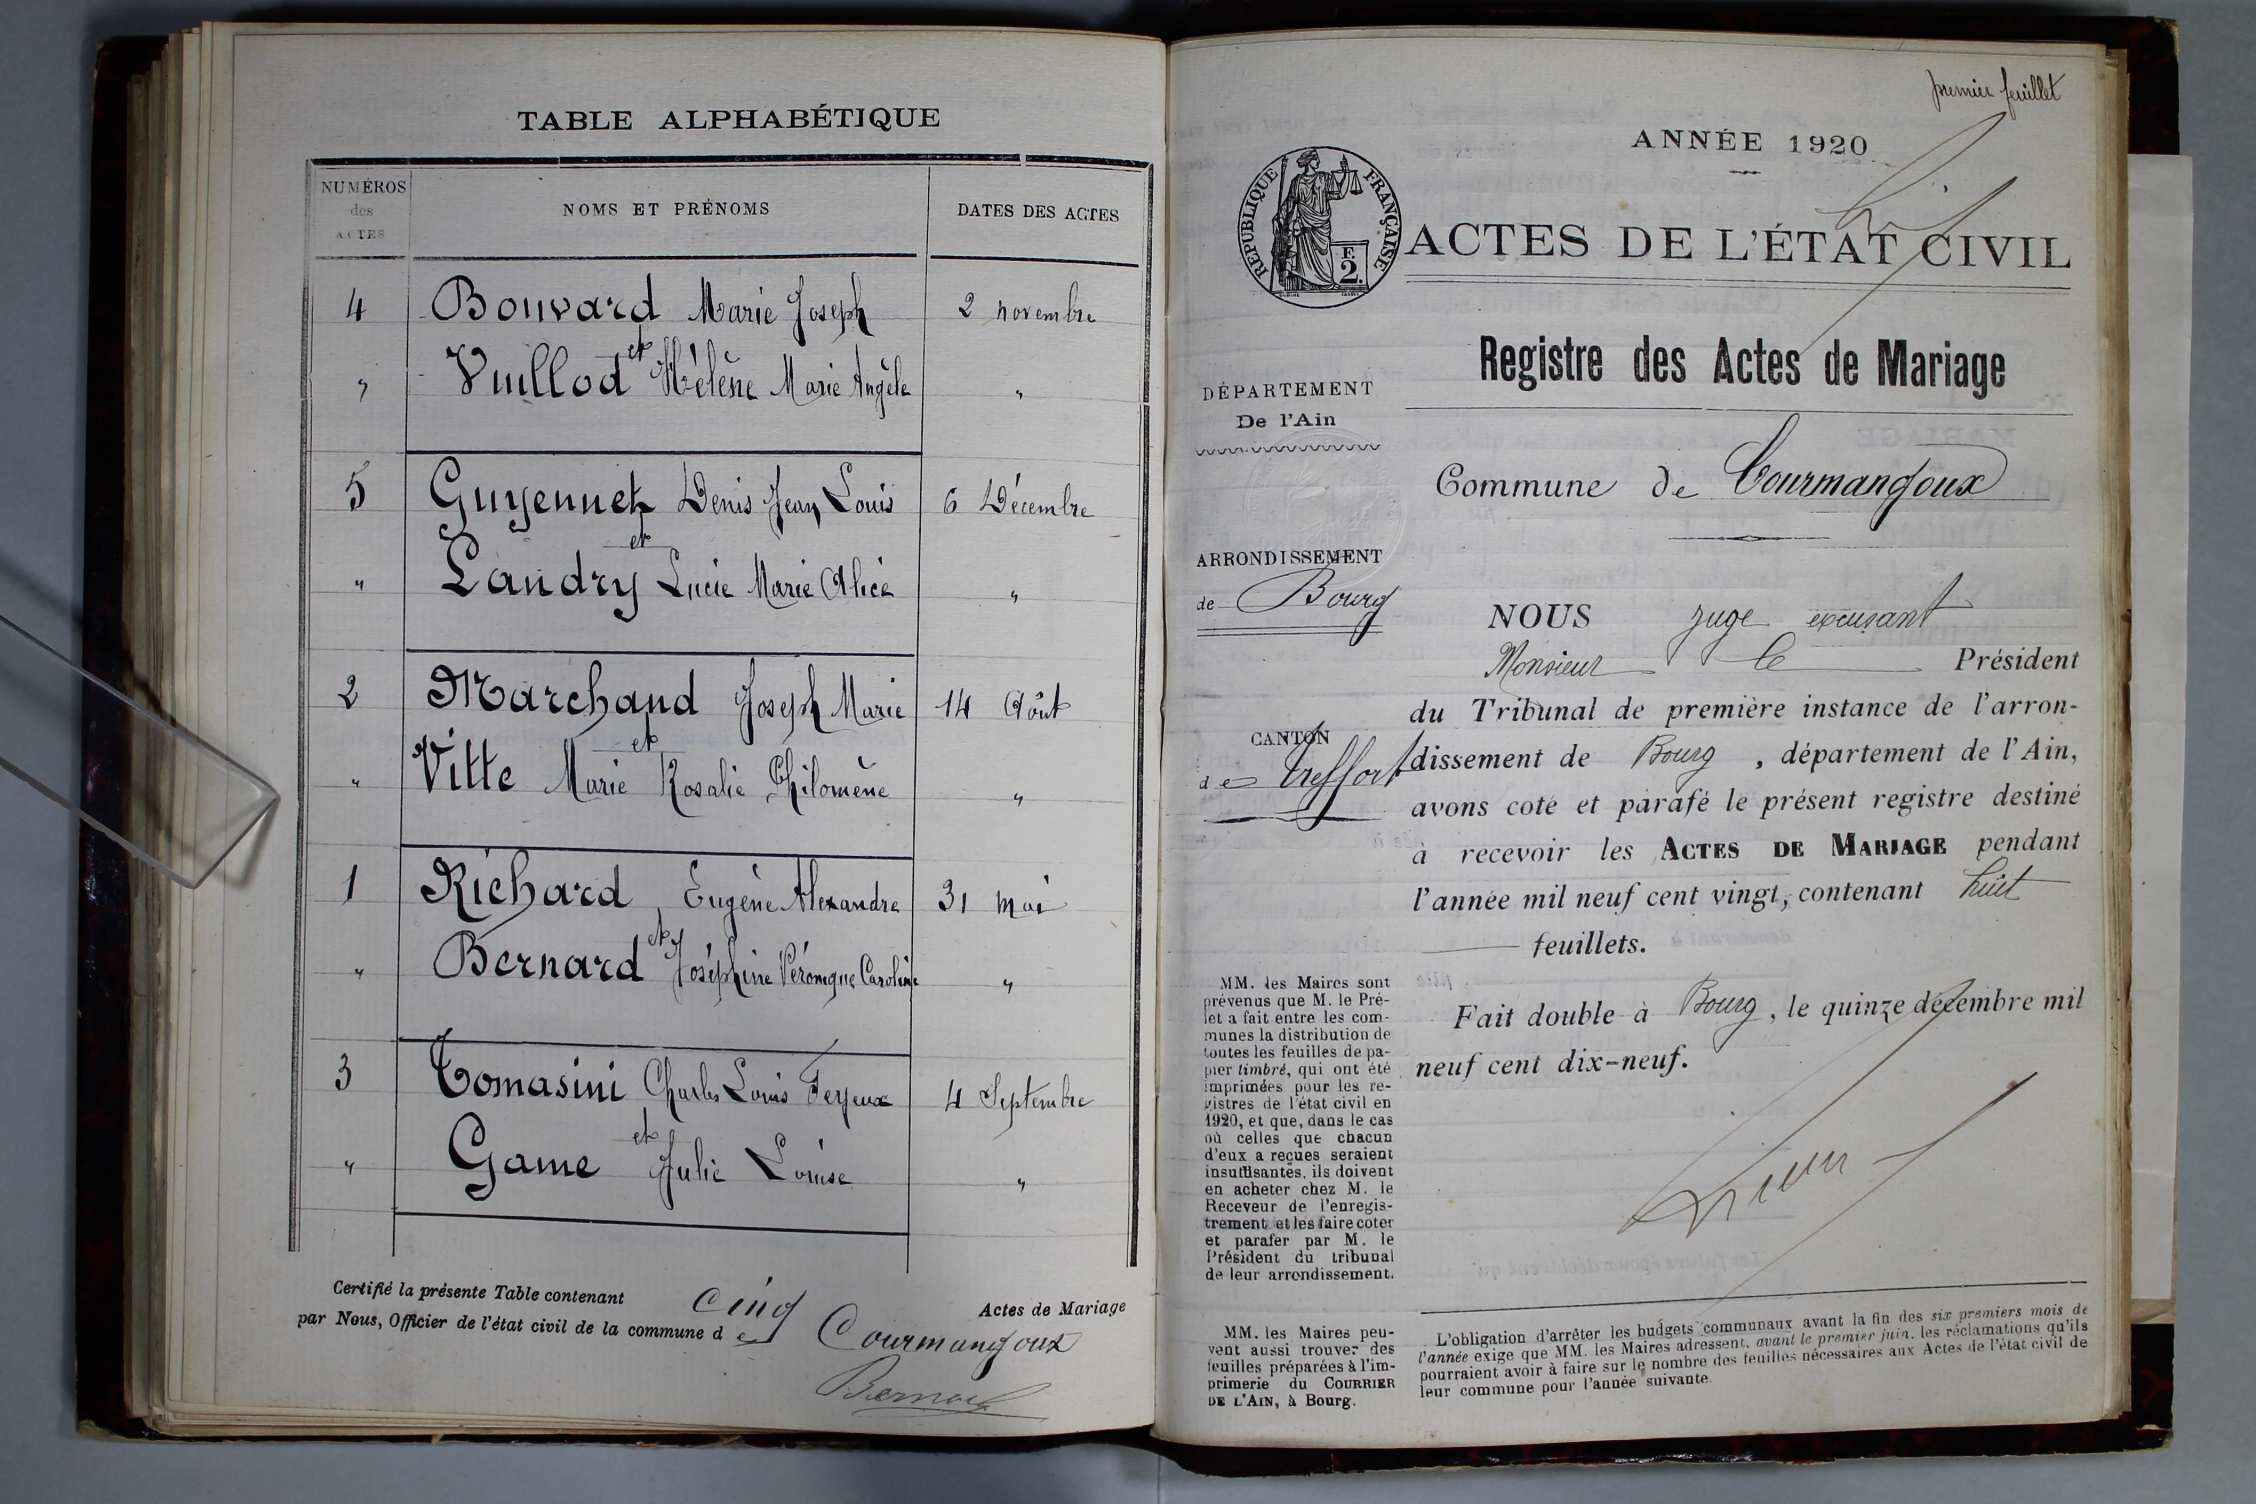 TABLE ALPHABÉTIQUE
NUMÉROS des ACTES
NOMS ET PRÉNOMS
DATES DES ACTES
4 Bouvard Marie Joseph 2 novembre
et
" Vuillod Hélène Marie Angèle "
5 Guyennet Denis Jean Louis 6 Décembre
et
" Landry Lucie Marie Alice "
2 Marchand Joseph Marie 14 Août
et
" Vitte Marie Rosalie Philomène "
1 Richard Eugène Alexandre 31 mai
et
" Bernard Joséphine Véronique Caroline "
3 Tomasini Charles Louis Ferjeux 4 Septembre
et
" Game Julie Louise "
Certifié la présente Table contenant cinq Actes de Mariage
par Nous, Officier de l'état civil de la commune de Courmangoux
premier feuillet
ANNÉE 1920
RÉPUBLIQUE FRANÇAISE
F. 2.
ACTES DE L'ÉTAT CIVIL
Registre des Actes de Mariage
DÉPARTEMENT
De l'Ain
Commune de Courmangoux
ARRONDISSEMENT
de Bourg
CANTON
de Treffort
NOUS juge excusant
Monsieur le Président
du Tribunal de première instance de l'arron-
dissement de Bourg, département de l'Ain,
avons coté et parafé le présent registre destiné
à recevoir les ACTES DE MARIAGE pendant
l'année mil neuf cent vingt, contenant huit
feuillets.
Fait double à Bourg, le quinze décembre mil
neuf cent dix-neuf.
MM. les Maires sont
prévenus que M. le Pré-
fet a fait entre les com-
munes la distribution de
toutes les feuilles de pa-
pier timbré, qui ont été
imprimées pour les re-
gistres de l'état civil en
1920, et que, dans le cas
où celles que chacun
d'eux a reçues seraient
insuffisantes, ils doivent
en acheter chez M. le
Receveur de l'enregis-
trement et les faire coter
et parafer par M. le
Président du tribunal
de leur arrondissement.
MM. les Maires peu-
vent aussi trouver des
feuilles préparées à l'im-
primerie du COURRIER
DE L'AIN, à Bourg.
L'obligation d'arrêter les budgets communaux avant la fin des six premiers mois de
l'année exige que MM. les Maires adressent, avant le premier juin, les réclamations qu'ils
pourraient avoir à faire sur le nombre des feuilles nécessaires aux Actes de l'état civil de
leur commune pour l'année suivante.